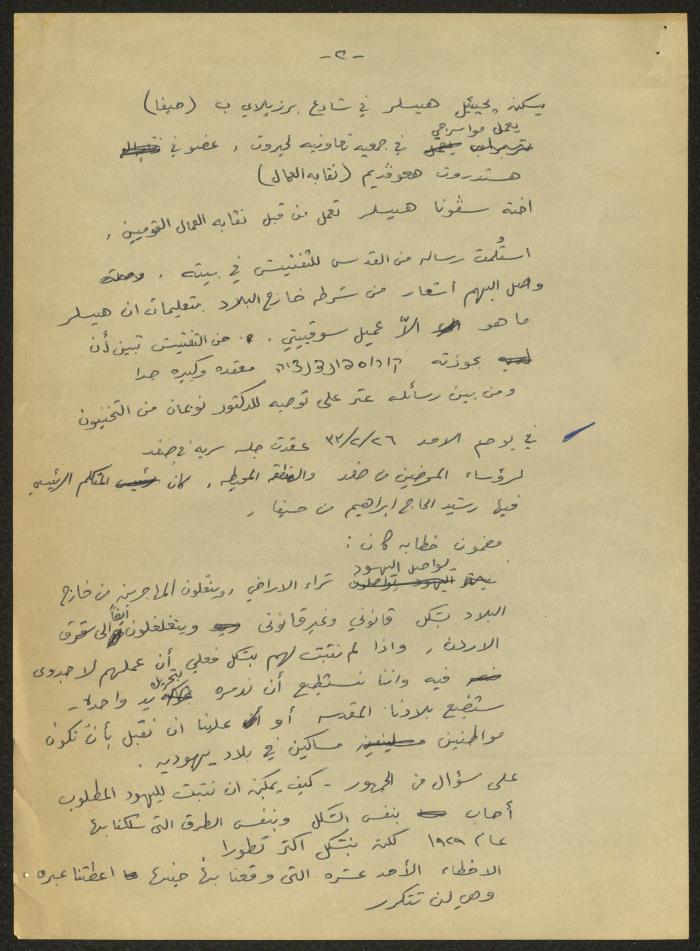 -٢-
يسكن يحيئيل هيسلر في شارع برزيلاي ب (حيفا)
يعمل مواسرجي
في جمعيه تعاونيه لحيروت، عضو في
هستدروت هعوڤديم (نقابة العمال)
اخته سڤونا هيسلر تعمل من قبل نقابه العمال القوميين،
استُلمت رساله من القدس للتفتيش في بيته.
وصل اليهم اشعار من شرطه خارج البلاد بتعليمات ان هيسلر
ما هو الاّ عميل سوڤييتي. من التفتيش تبين أن
بحوزته معقده وكبيره جدا
ومن بين رسائله عثر على توصيه للدكتور نويمان من التخنيون
في يوم الاحد ٣٣/٢/٢٦ عقدت جلسه سريه في صفد
لرؤساء المحرضين من صفد والمنطقه المحيطه، كان المتكلم الرئيسي
فيها رشيد الحاج ابراهيم من حيفا،
مضمون خطابه كان:
يواصل اليهود
شراء الاراضي، وينقلون المهاجرين من خارج
البلاد بشكل قانوني وغير قانوني ويتغلغلون أيضاً الى شرق
الاردن، واذا لم نثبت لهم بشكل فعلي أن عملهم لا جدوى
فيه واننا نستطيع أن ندمره بتحريك يد واحده -
ستضيع بلادنا المقدسه أو علينا ان نقبل بأن نكون
مواطنين مساكين في بلاد يهوديه.
على سؤال من الجمهور - كيف يمكن ان نثبت لليهود المطلوب
أجاب بنفس الشكل وبنفس الطرق التي سلكنا بها
عام ١٩٢٩ لكن بشكل اكثر تطورا.
الاخطاء الأحد عشره التي وقعنا بها حينها اعطتنا عبره
وهي لن تتكرر